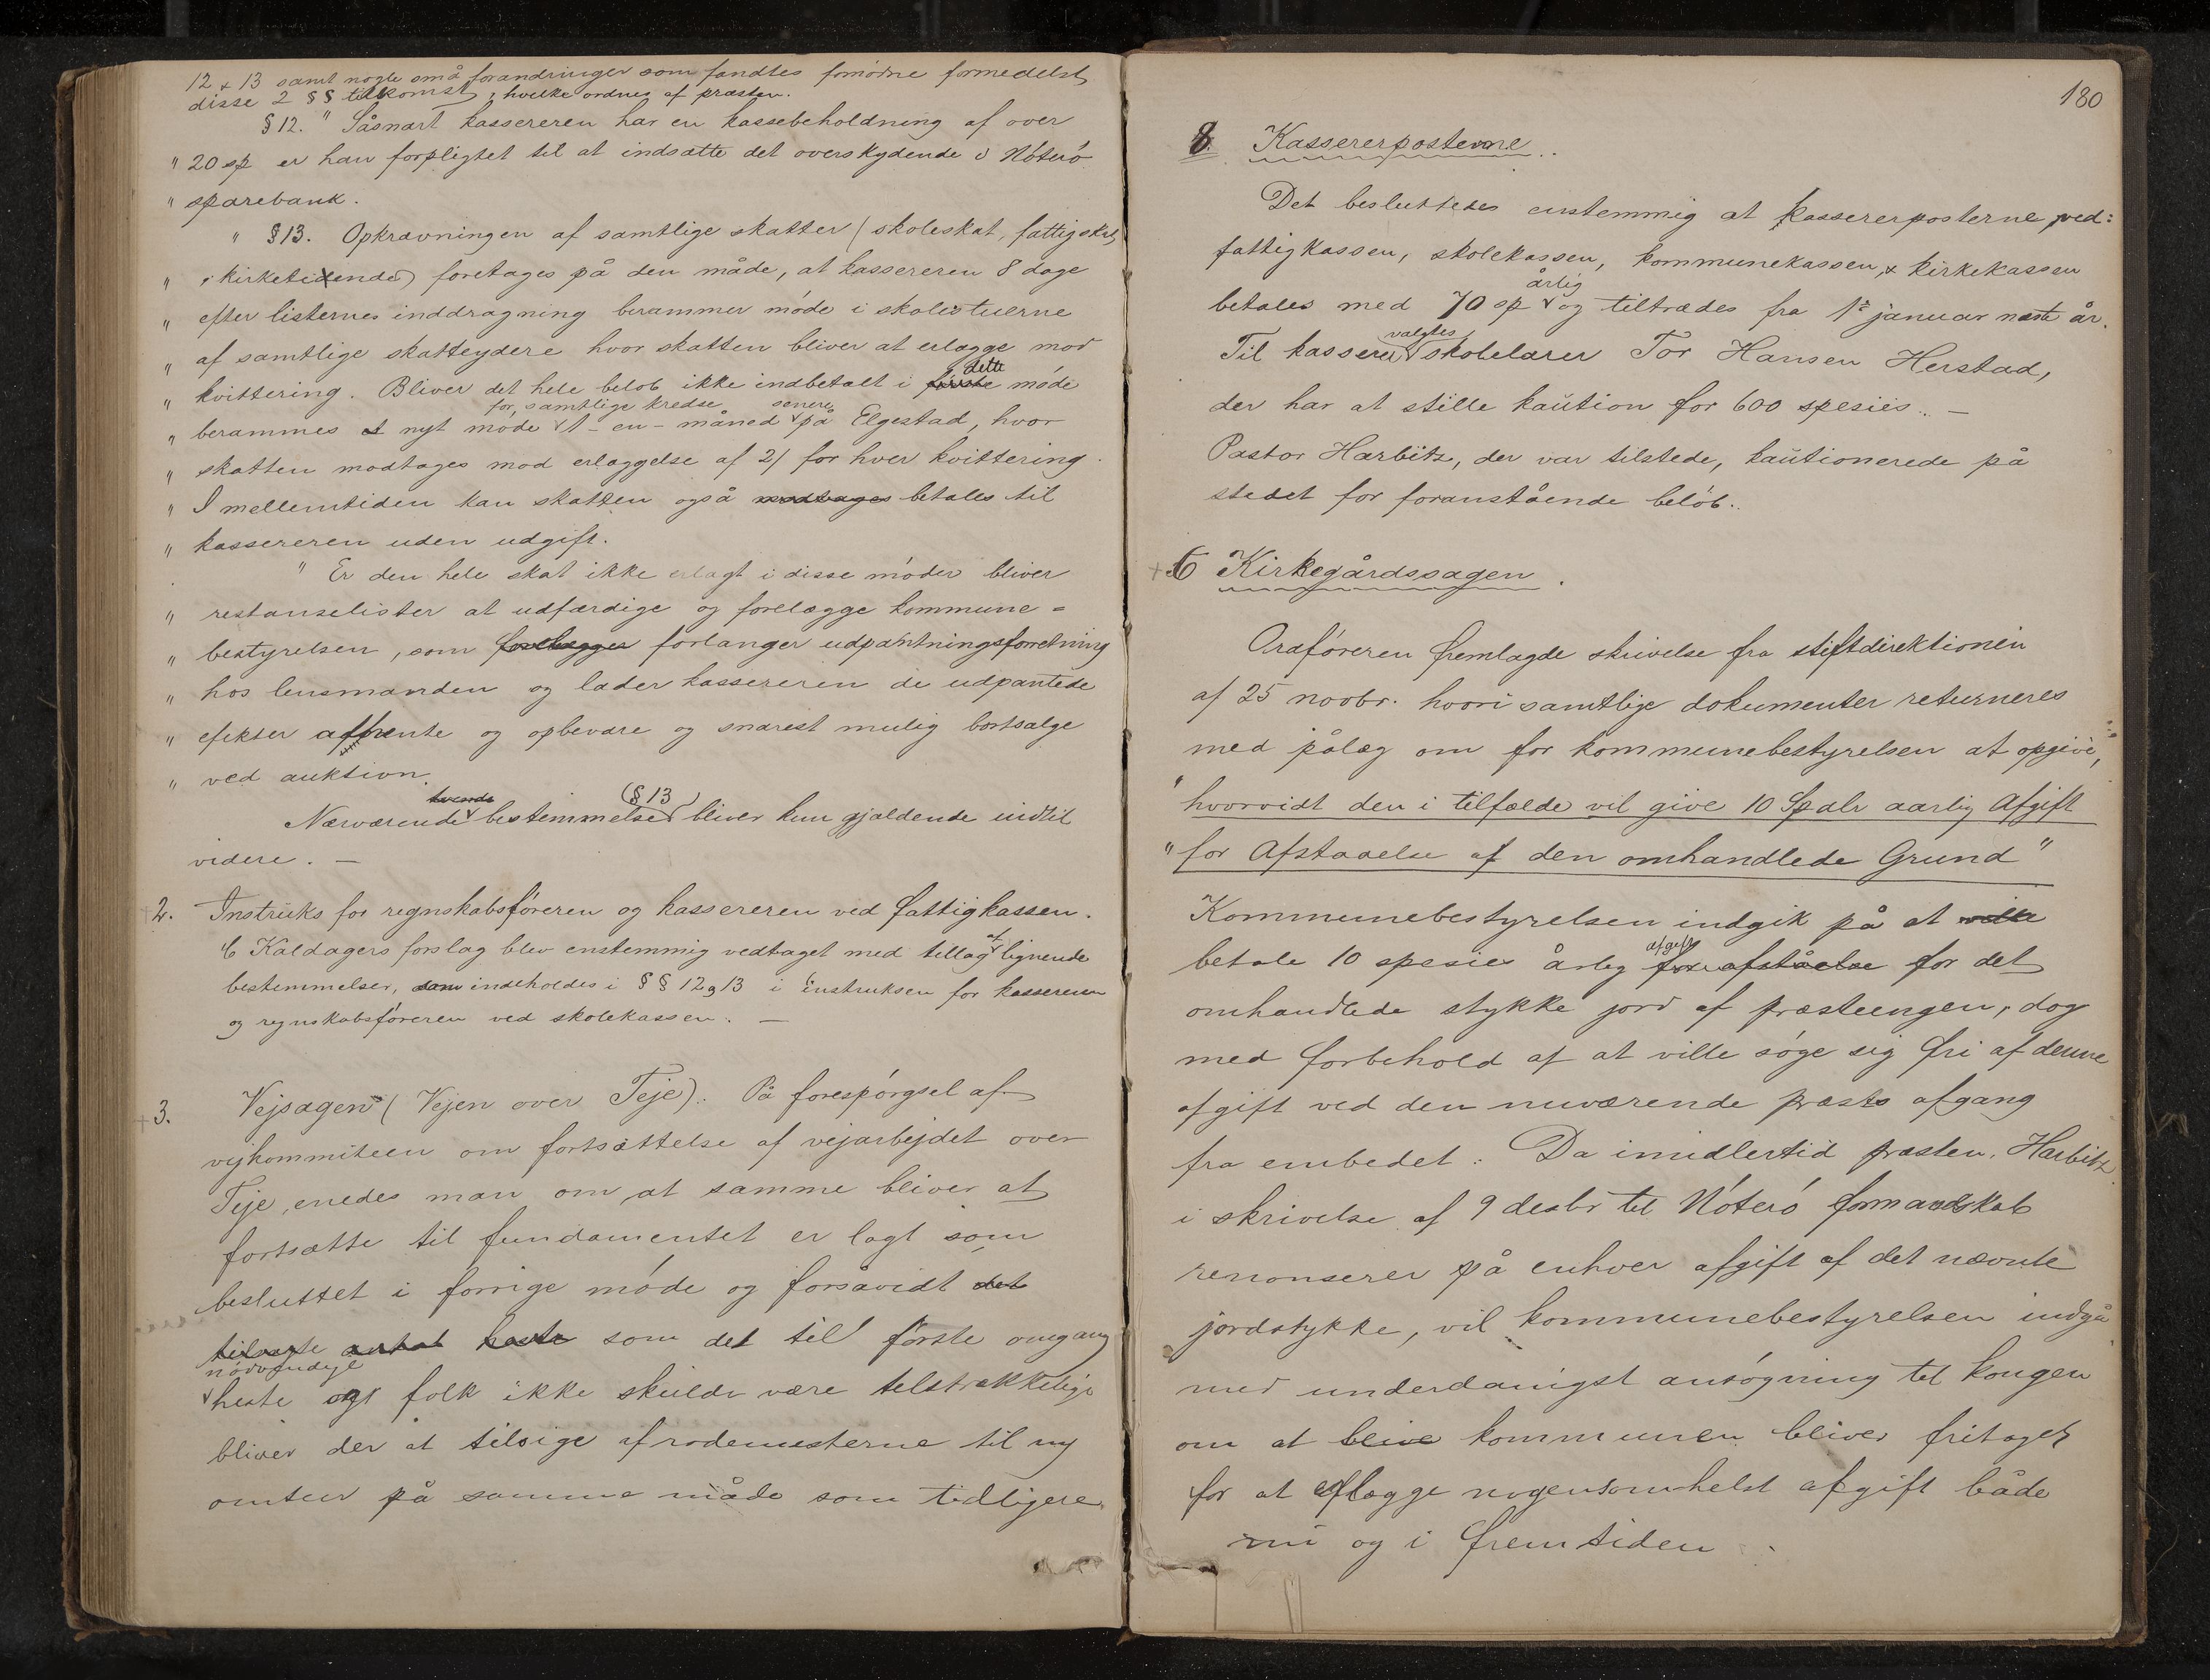 12 & 13 samt nogle små forandringer som fandtes fornødne formedelst
disse 2 §§ tilkomst, hvilke ordnes af præsten.
§ 12. " Såsnart kassereren har en kassebeholdning af over
" 20 sp er han forpligtet til at indsætte det overskydende i Nøterø
" sparebank.
" § 13. Opkrævningen af samtlige skatter (skoleskat, fattigskat,
" kirketiende) foretages på den måde, at kassereren 8 dage
" efter listernes inddragning berammer møde i skolestuerne
" af samtlige skatteydere hvor skatten bliver at erlægge mod
dette
" kvittering. Bliver det hele beløb ikke indbetalt i første møde
for samtlige kredse senere
" berammes et nyt møde 1 - en - måned på Elgestad, hvor
" skatten modtages mod erlæggelse af 2/ for hver kvittering.
" I mellemtiden kan skatten også modtages betales til
" kassereren uden udgift.
" Er den hele skat ikke erlagt i disse møder bliver
" restanselister at udfærdige og forelægge kommune=
" bestyrelsen, som forelægger forlanger udpantningsforretning
" hos lensmanden og lader kassereren de udpantede
" efekter afhente og opbevare og snarest mulig bortsælge
" ved auktion.
(§ 13)
Nærværende bestemmelse bliver kun gjældende indtil
videre. —
2. Instruks for regnskabsføreren og kassereren ved fattigkassen.
af
C Kaldagers forslag blev enstemmig vedtaget med tillæg lignende
bestemmelser, som indeholdes i §§ 12 og 13 i instruksen for kassereren
og regnskabsføreren ved skolekassen. —
3. Vejsagen (Vejen over Teje). På forespørgsel af
vejkommiteen om fortsættelse af vejarbejdet over
Teje, enedes man om at samme bliver at
fortsætte til fundamentet er lagt som
besluttet i forrige møde og forsåvidt det
tilsagte antal heste som det til første omgang
nødvendige
heste og folk ikke skulde være tilstrækkelige
bliver der at tilsige af rodemesterne til ny
omtur på samme måde som tidligere.
180
8. Kassererposterne.
Det besluttedes enstemmig at kassererposterne ved:
fattigkassen, skolekassen, kommunekassen, & kirkekassen
årlig
betales med 70 sp og tiltrædes fra 1ste januar næste år.
valgtes
Til kasserer skolelærer Tor Hansen Herstad,
der har at stille kaution for 600 spesies. —
Pastor Harbitz, der var tilstede, kautionerede på
stedet for foranstående beløb.
+ 6 Kirkegårdssagen.
Ordføreren fremlagde skrivelse fra stiftdirektionen
af 25 novbr. hvori samtlige dokumenter returneres
med pålæg om for kommunebestyrelsen at opgive,
" hvorvidt den i tilfælde vil give 10 Spdlr aarlig Afgift
" for Afstaaelse af den omhandlede Grund"
Kommunebestyrelsen indgik på at ville
afgift
betale 10 spesies årlig for afståelse for det
omhandlede stykke jord af præsteengen, dog
med forbehold af at ville søge sig fri af denne
afgift ved den nuværende præsts afgang
fra embedet. Da imidlertid præsten, Harbitz
i skrivelse af 9 desbr til Nøterø formandskab
renonserer på enhver afgift af det nævnte
jordstykke, vil kommunebestyrelsen indgå
med underdanigst ansøgning til kongen
om at blive kommunen bliver fritaget
for at erlægge nogensomhelst afgift både
nu og i fremtiden.